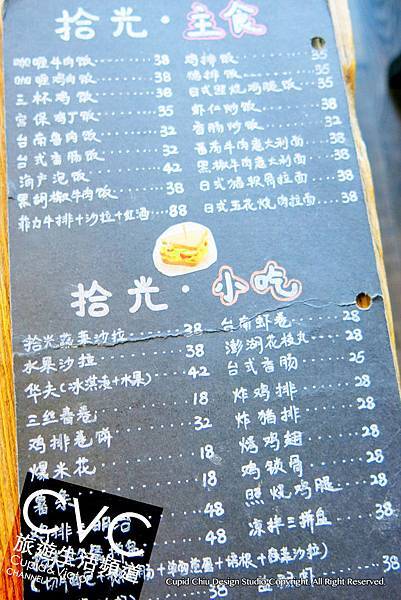 拾光·主食
咖喱牛肉饭 38
咖喱鸡肉饭 38
三杯鸡饭 38
宫保鸡丁饭 35
台南鲁肉饭 32
台式香肠饭 32
海产泡饭 42
黑胡椒牛肉饭 38
菲力牛排+沙拉+红酒 88
鸡排饭 35
猪排饭 35
台式照烧鸡腿饭 35
虾仁炒饭 38
香肠炒饭 32
蕃茄牛肉意大利面 38
黑椒牛肉意大利面 38
日式猪软骨拉面 38
日式五花烧肉拉面 38
拾光·小吃
拾光蔬菜沙拉 38
水果沙拉 38
华夫(冰淇淋+水果) 42
三丝春卷 18
鸡排卷饼 32
爆米花 18
薯条 18
台南虾卷 28
澎湖花枝丸 28
台式香肠 25
炸鸡排 28
炸猪排 28
烤鸡翅 28
鸡软骨 28
照烧鸡腿 28
凉拌三拼盘
48
48
48
38
38
CVC
旅遊生活頻道
Cupid & Vicky
CHANNEL
Cupid Chiu Design Studio Copyright. All Right Reserved.